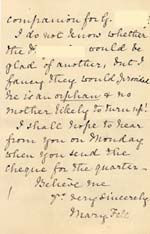 companion for G.
I do not know whether
the would be
glad of another, but I
fancy they would. promise
he is an orphan & no
mother likely to turn up!
I shall hope to hear
from you on Monday
when you send the
cheque for the quarter.
Believe me
Yrs very sincerely
Mary Fell